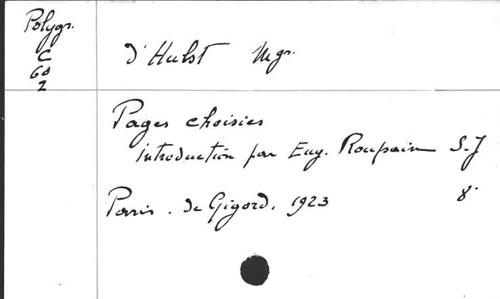 Polygr.
C
60
2
d'Hulst Mgr.
Pages choisies
introduction par Eug. Roupain S.J
Paris. de Gigord. 1923 8°